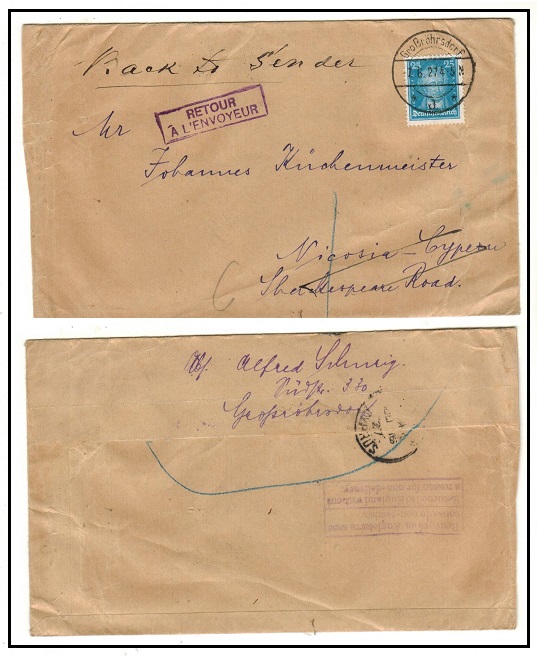 Back to Sender
Großröhrsdorf
25 25
Deutsches Reich
RETOUR
A L'ENVOYEUR
Mr
Johannes Küchenmeister
Nicosia - Cypern
Shakespeare Road.
Alfred Schurig.
Südstr. 330
Großröhrsdorf